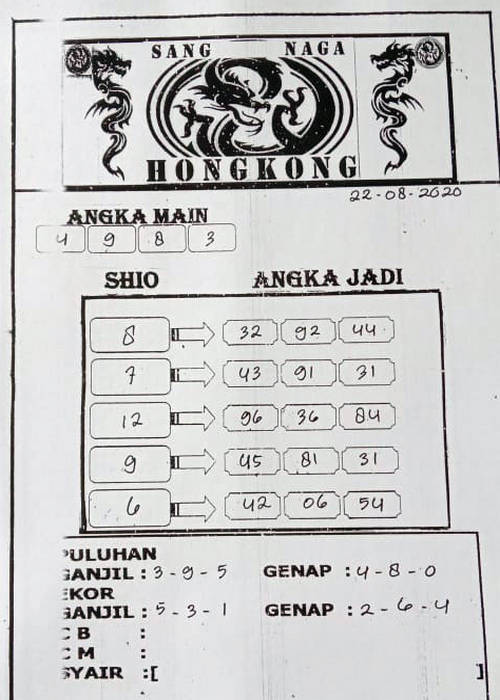 SANG NAGA
HONGKONG
22-08-2020
ANGKA MAIN
4 9 8 3
SHIO ANGKA JADI
8 32 92 44
7 43 91 31
12 96 36 84
9 45 81 31
6 42 06 54
PULUHAN
GANJIL : 3-9-5 GENAP : 4-8-0
EKOR
GANJIL : 5-3-1 GENAP : 2-6-4
C B :
C M :
SYAIR :[ ]